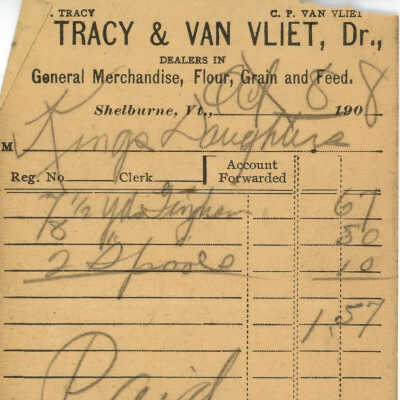 . TRACY C. P. VAN VLIET
TRACY & VAN VLIET, Dr.,
DEALERS IN
General Merchandise, Flour, Grain and Feed.
Shelburne, Vt., Oct 8 1908
M Kings Daughters
Reg. No Clerk Account Forwarded
7 ½ Yds Gingham 67
8 " 50
2 Spools 10
1.57
Paid